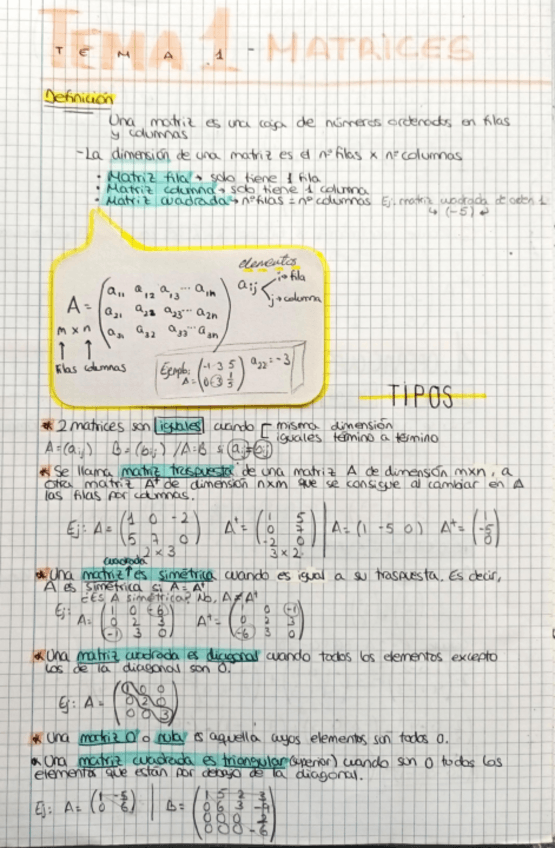 TEMA 1 - MATRICES
Definición
Una matriz es una caja de números ordenados en filas
y columnas
- La dimensión de una matriz es el nº filas x nº columnas
• Matriz fila → solo tiene 1 fila
• Matriz columna → solo tiene 1 columna
• Matriz cuadrada → nº filas = nº columnas Ej: matriz cuadrada de orden 1
↳ (-5)
elementos
A = (a₁₁ a₁₂ a₁₃ ... a₁ₙ
a₂₁ a₂₂ a₂₃ ... a₂ₙ
a₃₁ a₃₂ a₃₃ ... a₃ₙ)
aij < i → fila
j → columna
m x n
↑ ↑
filas columnas
Ejemplo: A = (-1 3 5
0 -3 1/3) a₂₂ = -3
TIPOS
* 2 matrices son iguales cuando [ misma dimensión
iguales término a término
A = (aij) B = (bij) / A = B si aij = bij
* Se llama matriz traspuesta de una matriz A de dimensión mxn, a
otra matriz Aᵗ de dimensión nxm que se consigue al cambiar en A
las filas por columnas.
Ej: A = (1 0 -2
5 7 0) Aᵗ = (1 5
0 7
-2 0) | A = (1 -5 0) Aᵗ = (1
-5
0)
2 x 3 3 x 2
cuadrada
* Una matriz ↑ es simétrica cuando es igual a su traspuesta. Es decir,
A es simétrica si A = Aᵗ
¿Es A simétrica? No, A ≠ Aᵗ
Ej: A = (1 0 -6
0 2 3
-1 3 0) Aᵗ = (1 0 -1
0 2 3
-6 3 0)
* Una matriz cuadrada es diagonal cuando todos los elementos excepto
los de la diagonal son 0.
Ej: A = (1 0 0
0 2 0
0 0 3)
* Una matriz 0 o nula es aquella cuyos elementos son todos 0.
* Una matriz cuadrada es triangular (superior) cuando son 0 todos los
elementos que están por debajo de la diagonal.
Ej: A = (1 -5
0 6) | B = (1 5 2 3
0 6 3
0 0 0
0 0 0 -6)